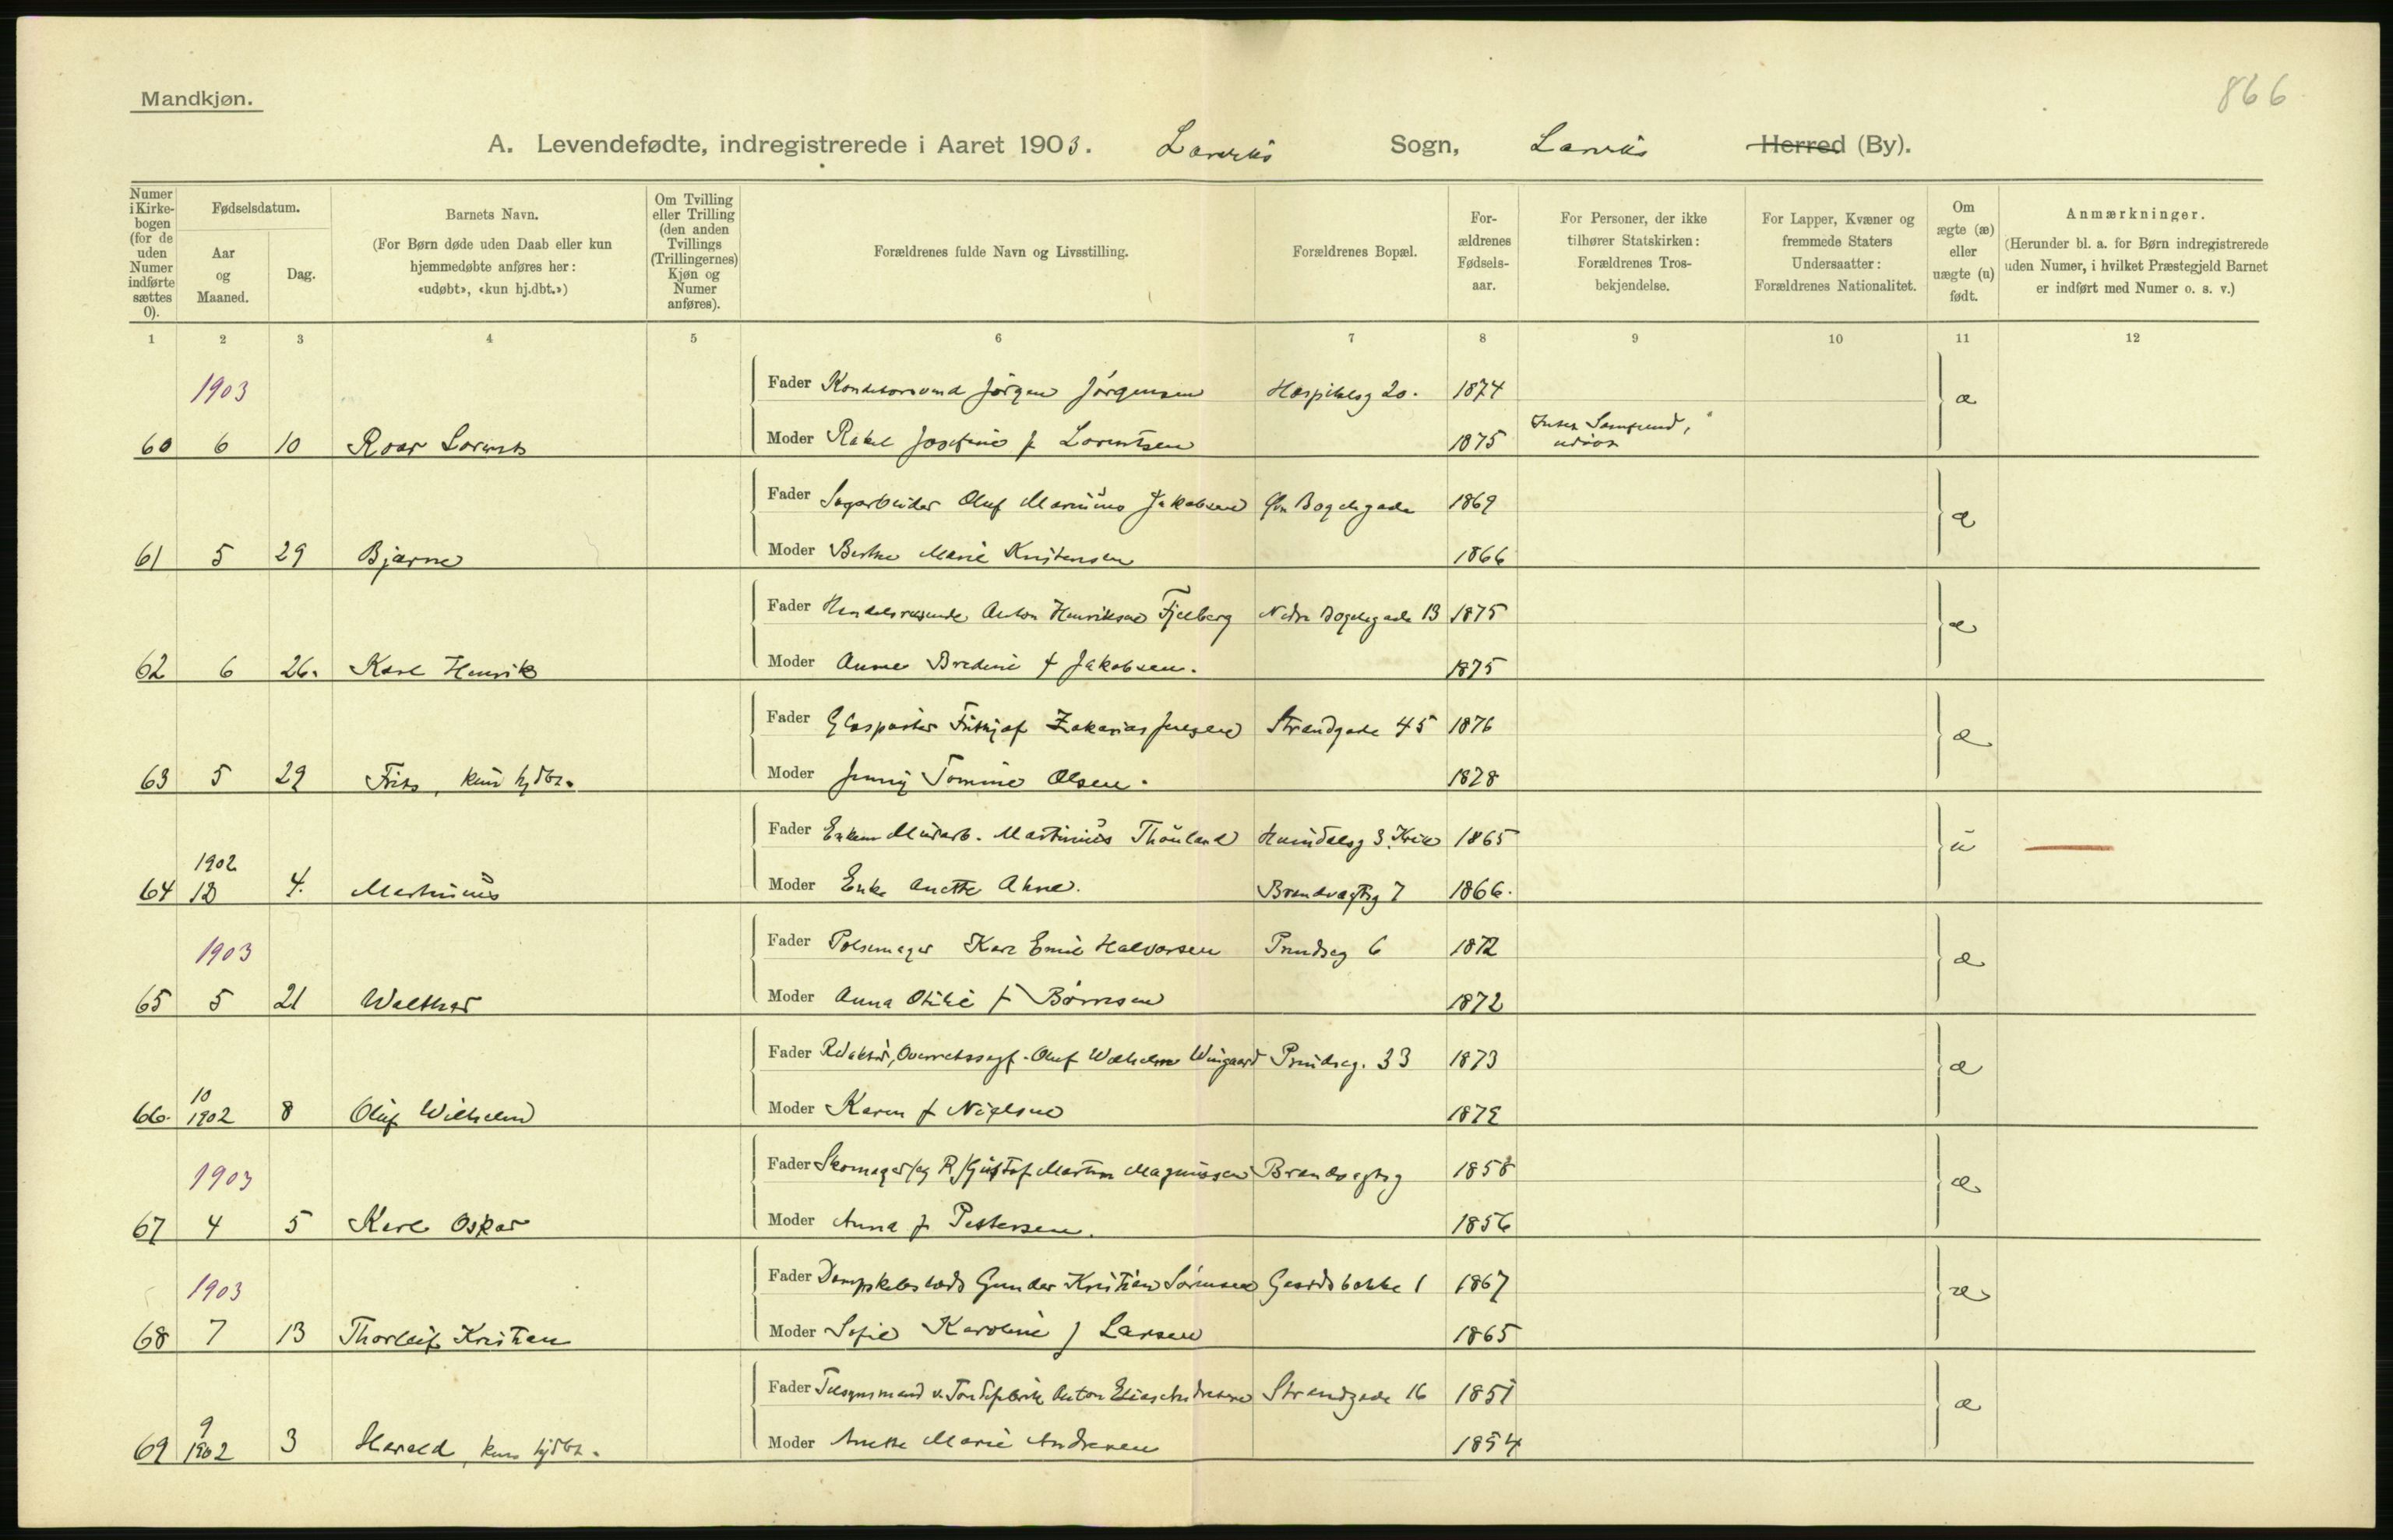 866
Mandkjøn.
A. Levendefødte, indregistrerede i Aaret 1903. Larviks Sogn, Larviks Herred (By).
Numer i Kirkebogen (for de uden Numer indførte sættes 0).
Fødselsdatum.
Aar og Maaned.
Dag.
Barnets Navn.
(For Børn døde uden Daab eller kun hjemmedøbte anføres her: «udøbt», «kun hj.dbt.»)
Om Tvilling eller Trilling (den anden Tvillings (Trillingernes) Kjøn og Numer anføres).
Forældrenes fulde Navn og Livsstilling.
Forældrenes Bopæl.
For-ældrenes Fødsels-aar.
For Personer, der ikke tilhører Statskirken: Forældrenes Tros-bekjendelse.
For Lapper, Kvæner og fremmede Staters Undersaatter: Forældrenes Nationalitet.
Om ægte (æ) eller uægte (u) født.
Anmærkninger.
(Herunder bl. a. for Børn indregistrerede uden Numer, i hvilket Præstegjeld Barnet er indført med Numer o. s. v.)
1 2 3 4 5 6 7 8 9 10 11 12
1903 Fader Konditorsvend Jørgen Jørgensen Hospitalsg 20. 1874 æ
60 6 10 Roar Lorents Moder Rakel Josefine f Lorentsen 1875 Intet Samfund,
Fader Sagarbeider Oluf Marinius Jakobsen Øvr Bøgelygade 1869 æ
61 5 29 Bjarne Moder Berthe Marie Kristensen 1866
Fader Handelsreisende Anton Henriksen Fjelberg Nedre Bøgelygade 13 1875 æ
62 6 26. Karl Henrik Moder Anna Bredine f Jakobsen. 1875
Fader Glaspuster Frithjof Zakarias Jensen Strandgade 45 1876 æ
63 5 29 Frits, kun hjdbt. Moder Jenny Tomine Olsen. 1878
Fader Enkem Murarb. Martinius Thauland 1865 u
64 1902 12 4. Martinius Moder Enke Anette Ahne. Brandvagtsg 7 1866.
1903 Fader Pølsemager Karl Emil Halvorsen Prindseg 6 1872 æ
65 5 21 Walther Moder Anna Otilie f Børresen 1872
Fader Redaktør, Overretssagf. Oluf Wilhelm Wingaard Prindseg. 33 1873 æ
66. 10 1902 8 Oluf Wilhelm Moder Karen f Nielsen 1879
1903 Fader Skomager Gustaf Martin Magnussen Brandvagtsg 1858 æ
67 4 5 Karl Oskar Moder Anna f Pettersen. 1856
1903 Fader Gunder Kristian Sørensen Gaardsbakke 1 1867 æ
68 7 13 Thorleif Kristian Moder Sofie Karoline f Larsen 1865
Fader Tilsynsmand v. Tøndefabrik Anton Elias Andresen Strandgade 16 1851 æ
69 9 1902 3 Harald, kun hjdbt. Moder Anette Marie Andresen 1854